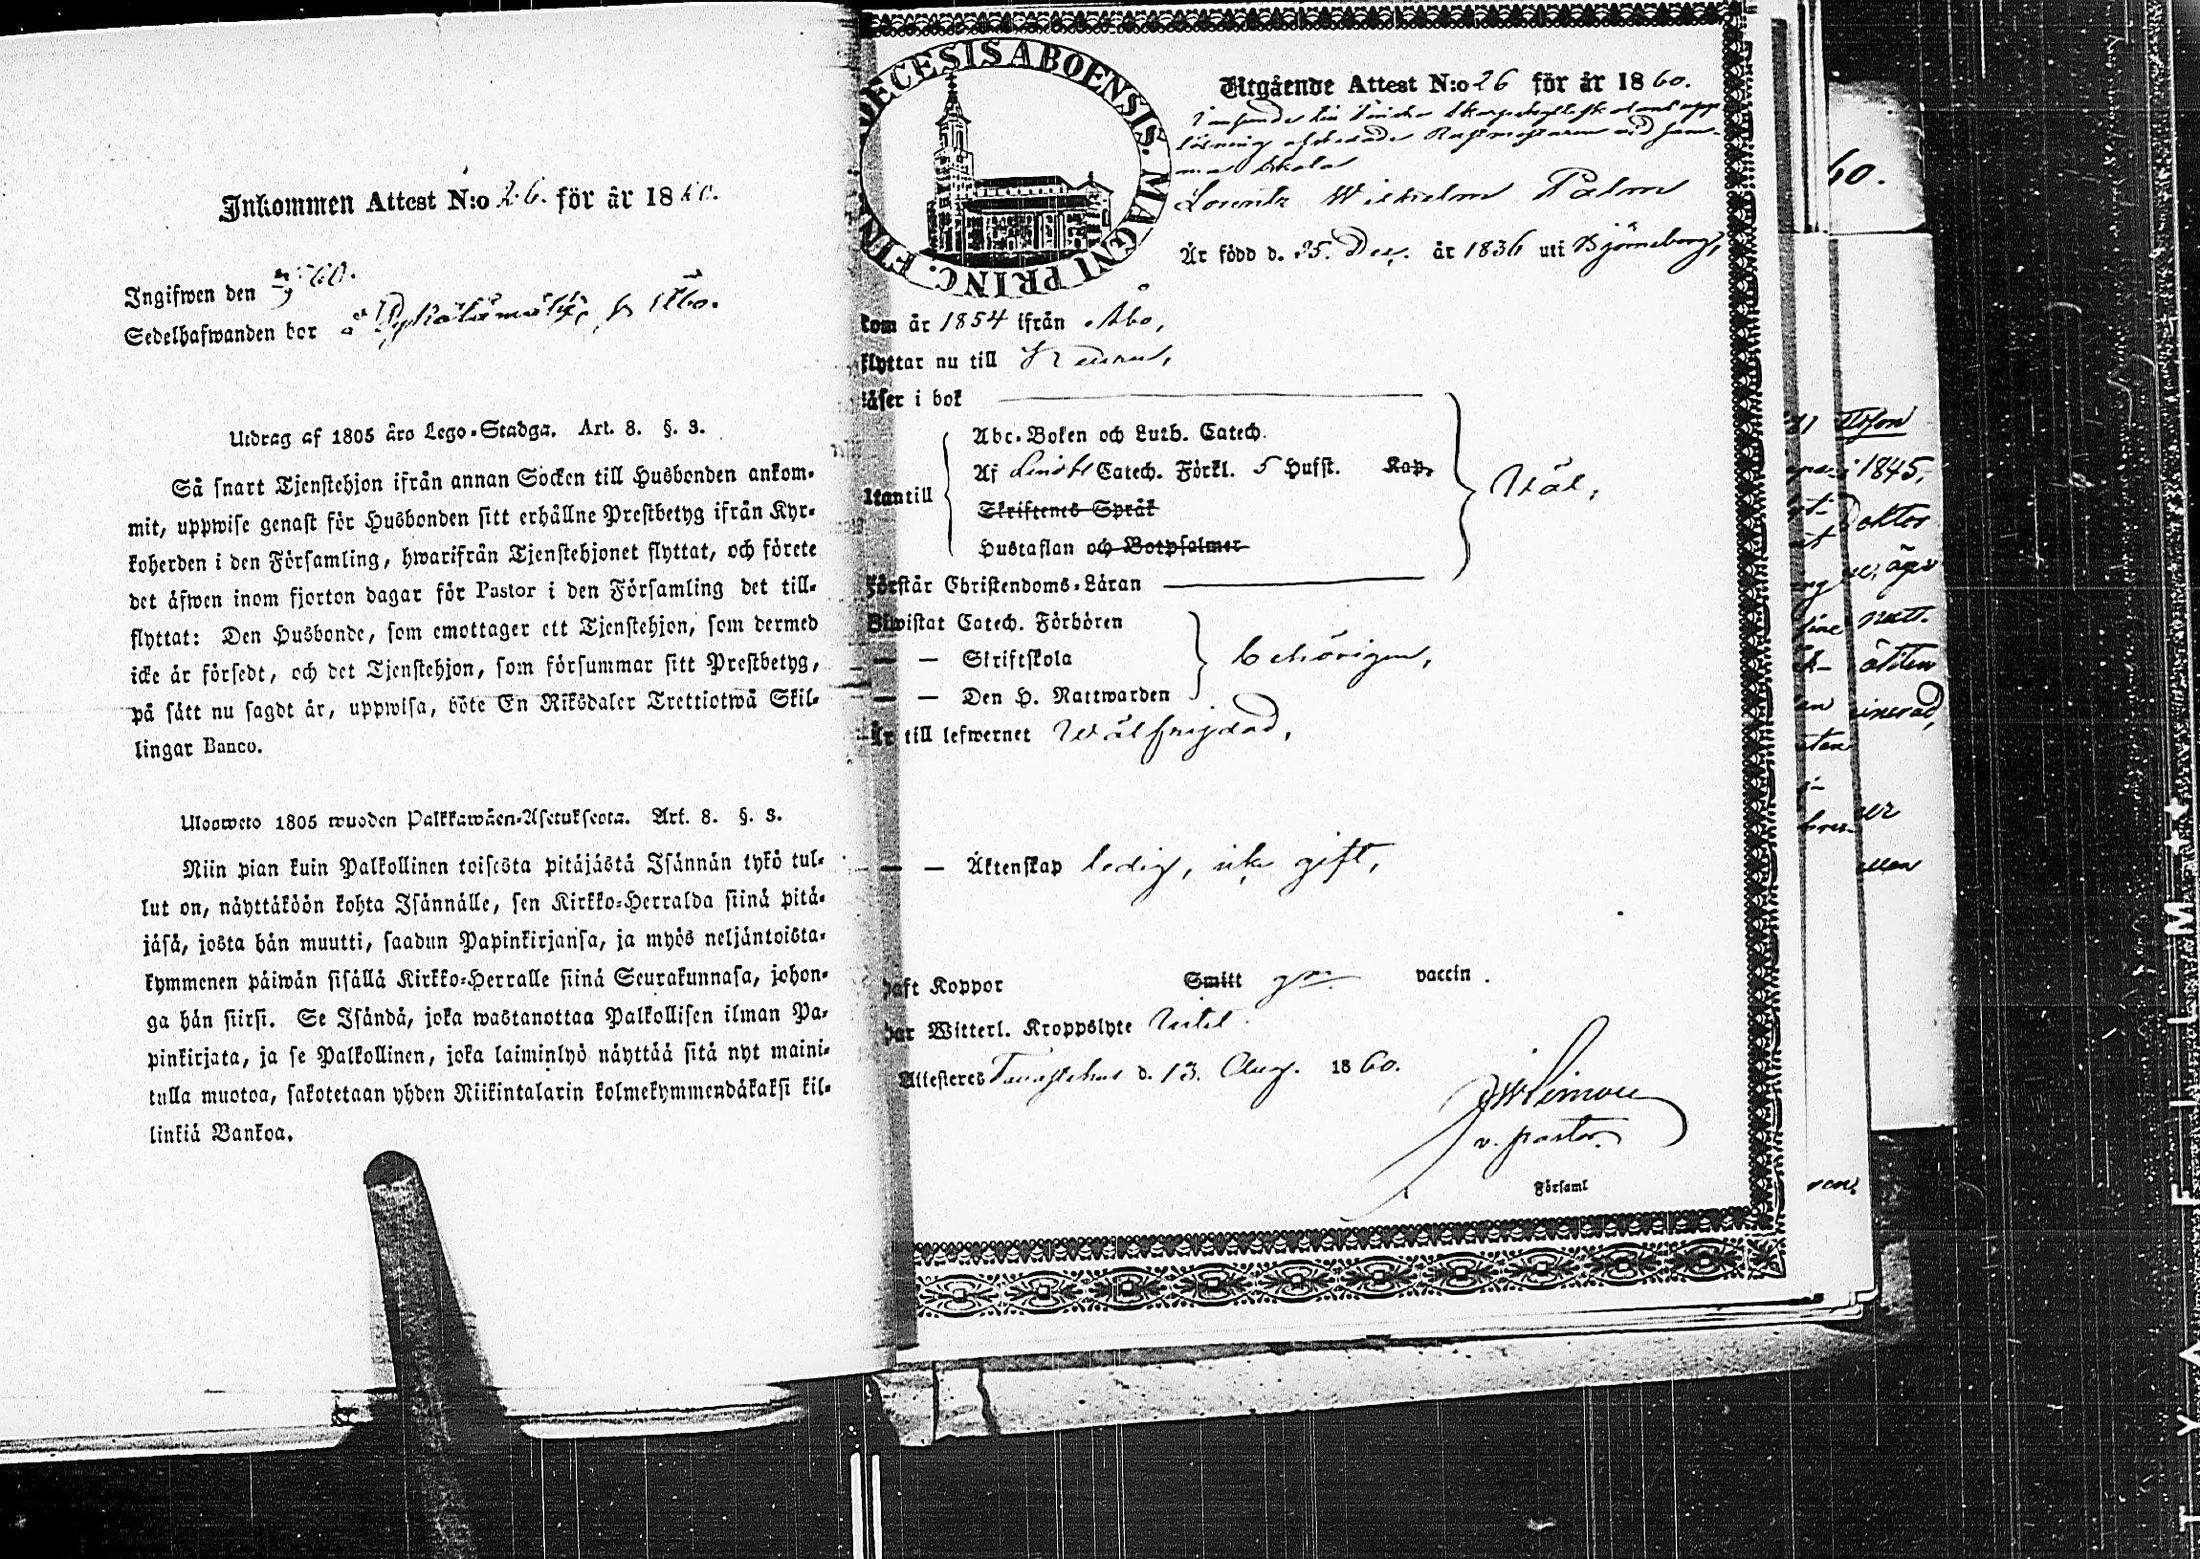 Inkommen Attest N:o 26. för år 1860.
Ingifwen den 60.
Sedelhafwanden bor å Åbo.
Utdrag af 1805 års Lego-Stadga. Art. 8. §. 3.
Så snart Tjenstehjon ifrån annan Socken till Husbonden ankom-
mit, uppwise genast för Husbonden sitt erhållne Prestbetyg ifrån Kyr-
koherden i den Församling, hwarifrån Tjenstehjonet flyttat, och förete
det äfwen inom fjorton dagar för Pastor i den Församling det till-
flyttat: Den Husbonde, som emottager ett Tjenstehjon, som dermed
icke är försedt, och det Tjenstehjon, som försummar sitt Prestbetyg,
på sätt nu sagdt är, uppwisa, böte En Riksdaler Trettiotwå Skil-
lingar Banco.
Ulosweto 1805 wuoden Palkkawäen-Asetuksesta. Art. 8. §. 3.
Niin pian kuin Palkollinen toisesta pitäjästä Isännän tykö tul-
lut on, näyttäköön kohta Isännälle, sen Kirkko-Herralda siinä pitä-
jäsä, josta hän muutti, saadun Papinkirjansa, ja myös neljäntoista-
kymmenen päiwän sisällä Kirkko-Herralle siinä Seurakunnasa, johon-
ga hän siirsi. Se Isändä, joka wastanottaa Palkollisen ilman Pa-
pinkirjata, ja se Palkollinen, joka laiminlyö näyttää sitä nyt maini-
tulla muotoa, sakotetaan yhden Riikintalarin kolmekymmendäkaksi kil-
linkiä Bankoa.
DIECESIS ABOENSIS. MAGNI PRINC. FIN
Utgående Attest N:o 26 för år 1860.
Lorentz Wilhelm Palm
Är född d. 25. Dec. år 1836 uti Björneborg,
kom år 1854 ifrån Åbo,
flyttar nu till
läser i bok
Abc-Boken och Luth. Catech.
Af Catech. Förkl. 5 Hufst. Kap.
Utantill
Skriftenes Språk
Hustaflan och Botpsalmer
Väl,
Förstår Christendoms-Läran
Biwistat Catech. Förhören
— — Skriftskola
— — Den H. Nattwarden
behörigen,
Är till lefwernet wälfrejdad,
— — Äktenskap ledig, icke gift,
haft Koppor Smitt gm vaccin.
har Witterl. Kroppslyte
Attesteres Tavastehus d. 13. Aug. 1860.
v. pastor
Församl
60.
i 1845,
Doktor
äger